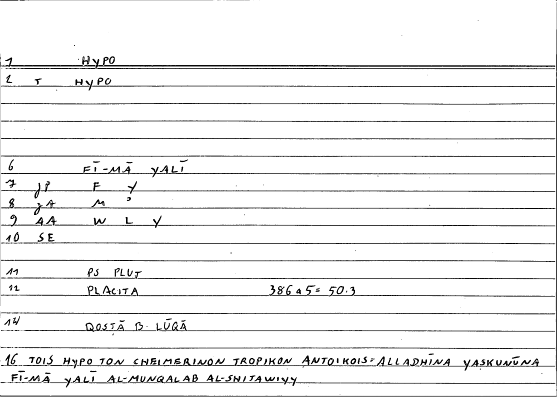 1 HYPO
2 T HYPO
6 FĪ-MĀ YALĪ
7 JP F Y
8 JA M ʾ
9 AA W L Y
10 SE
11 PS PLUT
12 PLACITA 386a5=50.3
14 QOSṬĀ B. LŪQĀ
16 TOIS HYPO TON CHEIMERINON TROPIKON ANTOIKOIS=ALLADHĪNA YASKUNŪNA
FĪ-MĀ YALĪ AL-MUNQALAB AL-SHITAWIYY